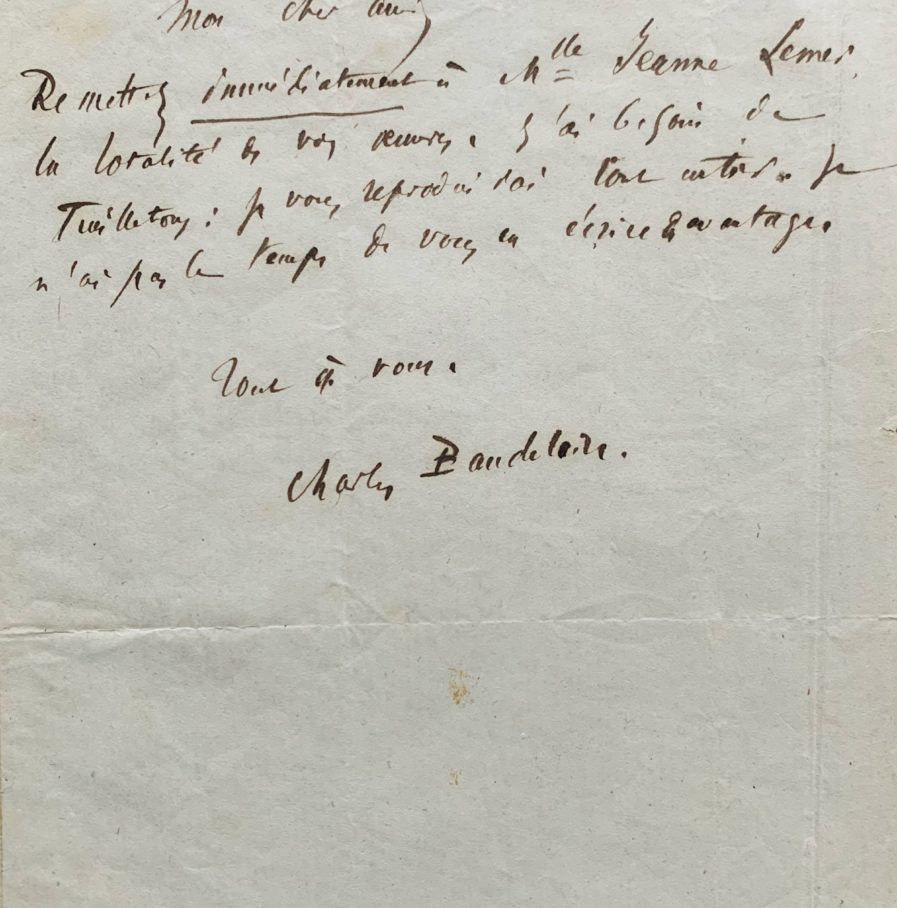 Mon cher ami,
Remettez immédiatement à Mlle Jeanne Lemer
la totalité de vos œuvres. J'ai besoin de
feuilletons : je vous reproduirai tout entier. Je
n'ai pas le temps de vous en écrire davantage.
Tout à vous.
Charles Baudelaire.